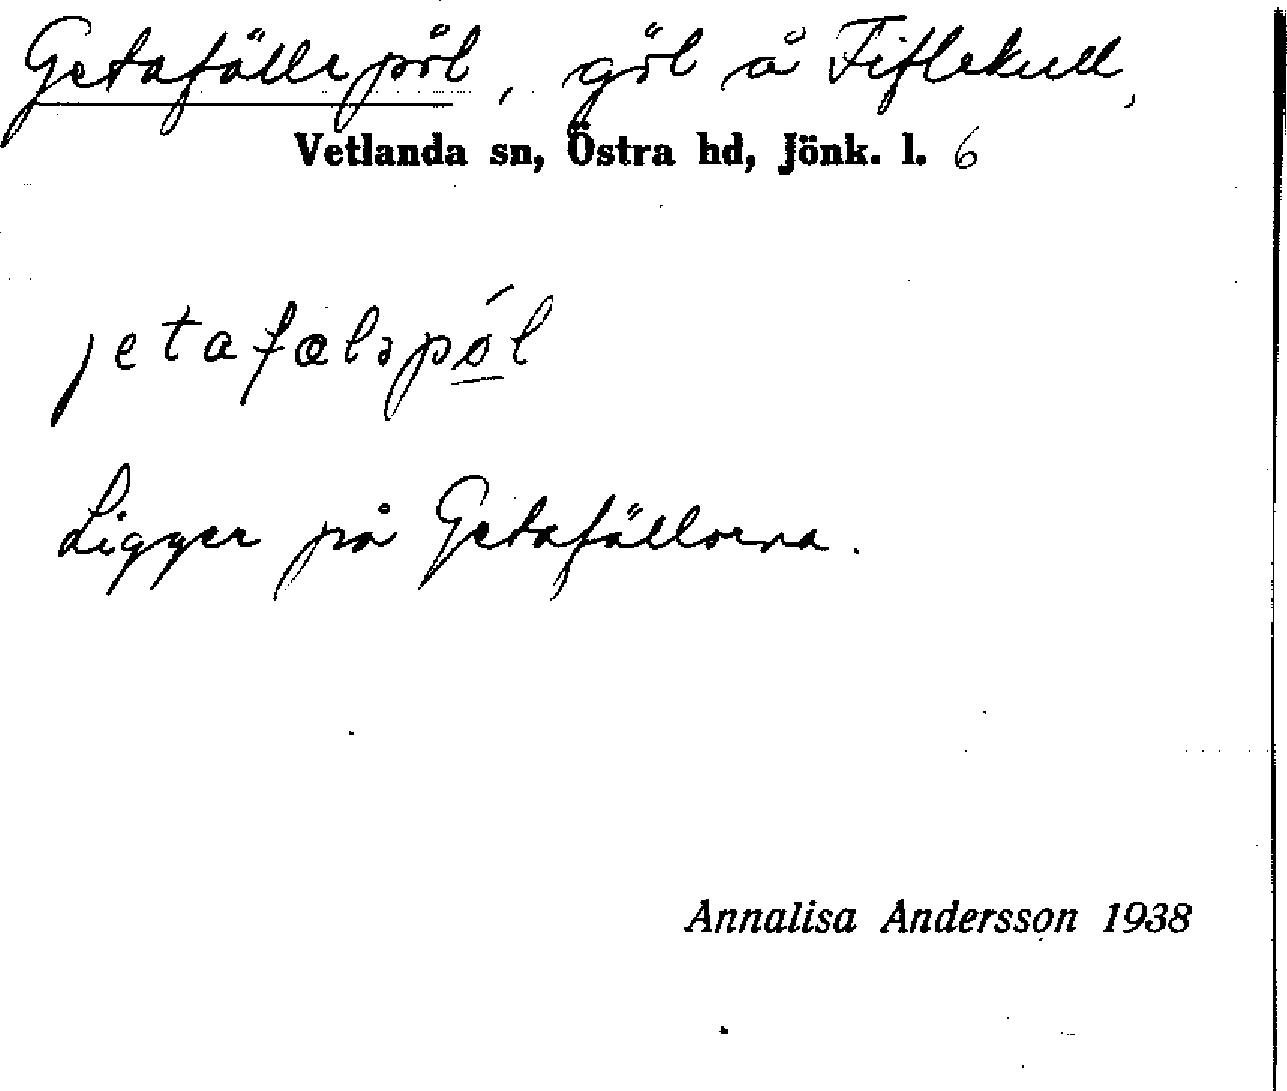 Getafällepöl, göl å Fiflekull,
Vetlanda sn, Östra hd, Jönk. l. 6
jetafæləpǿl
Ligger på Getafällorna.
Annalisa Andersson 1938